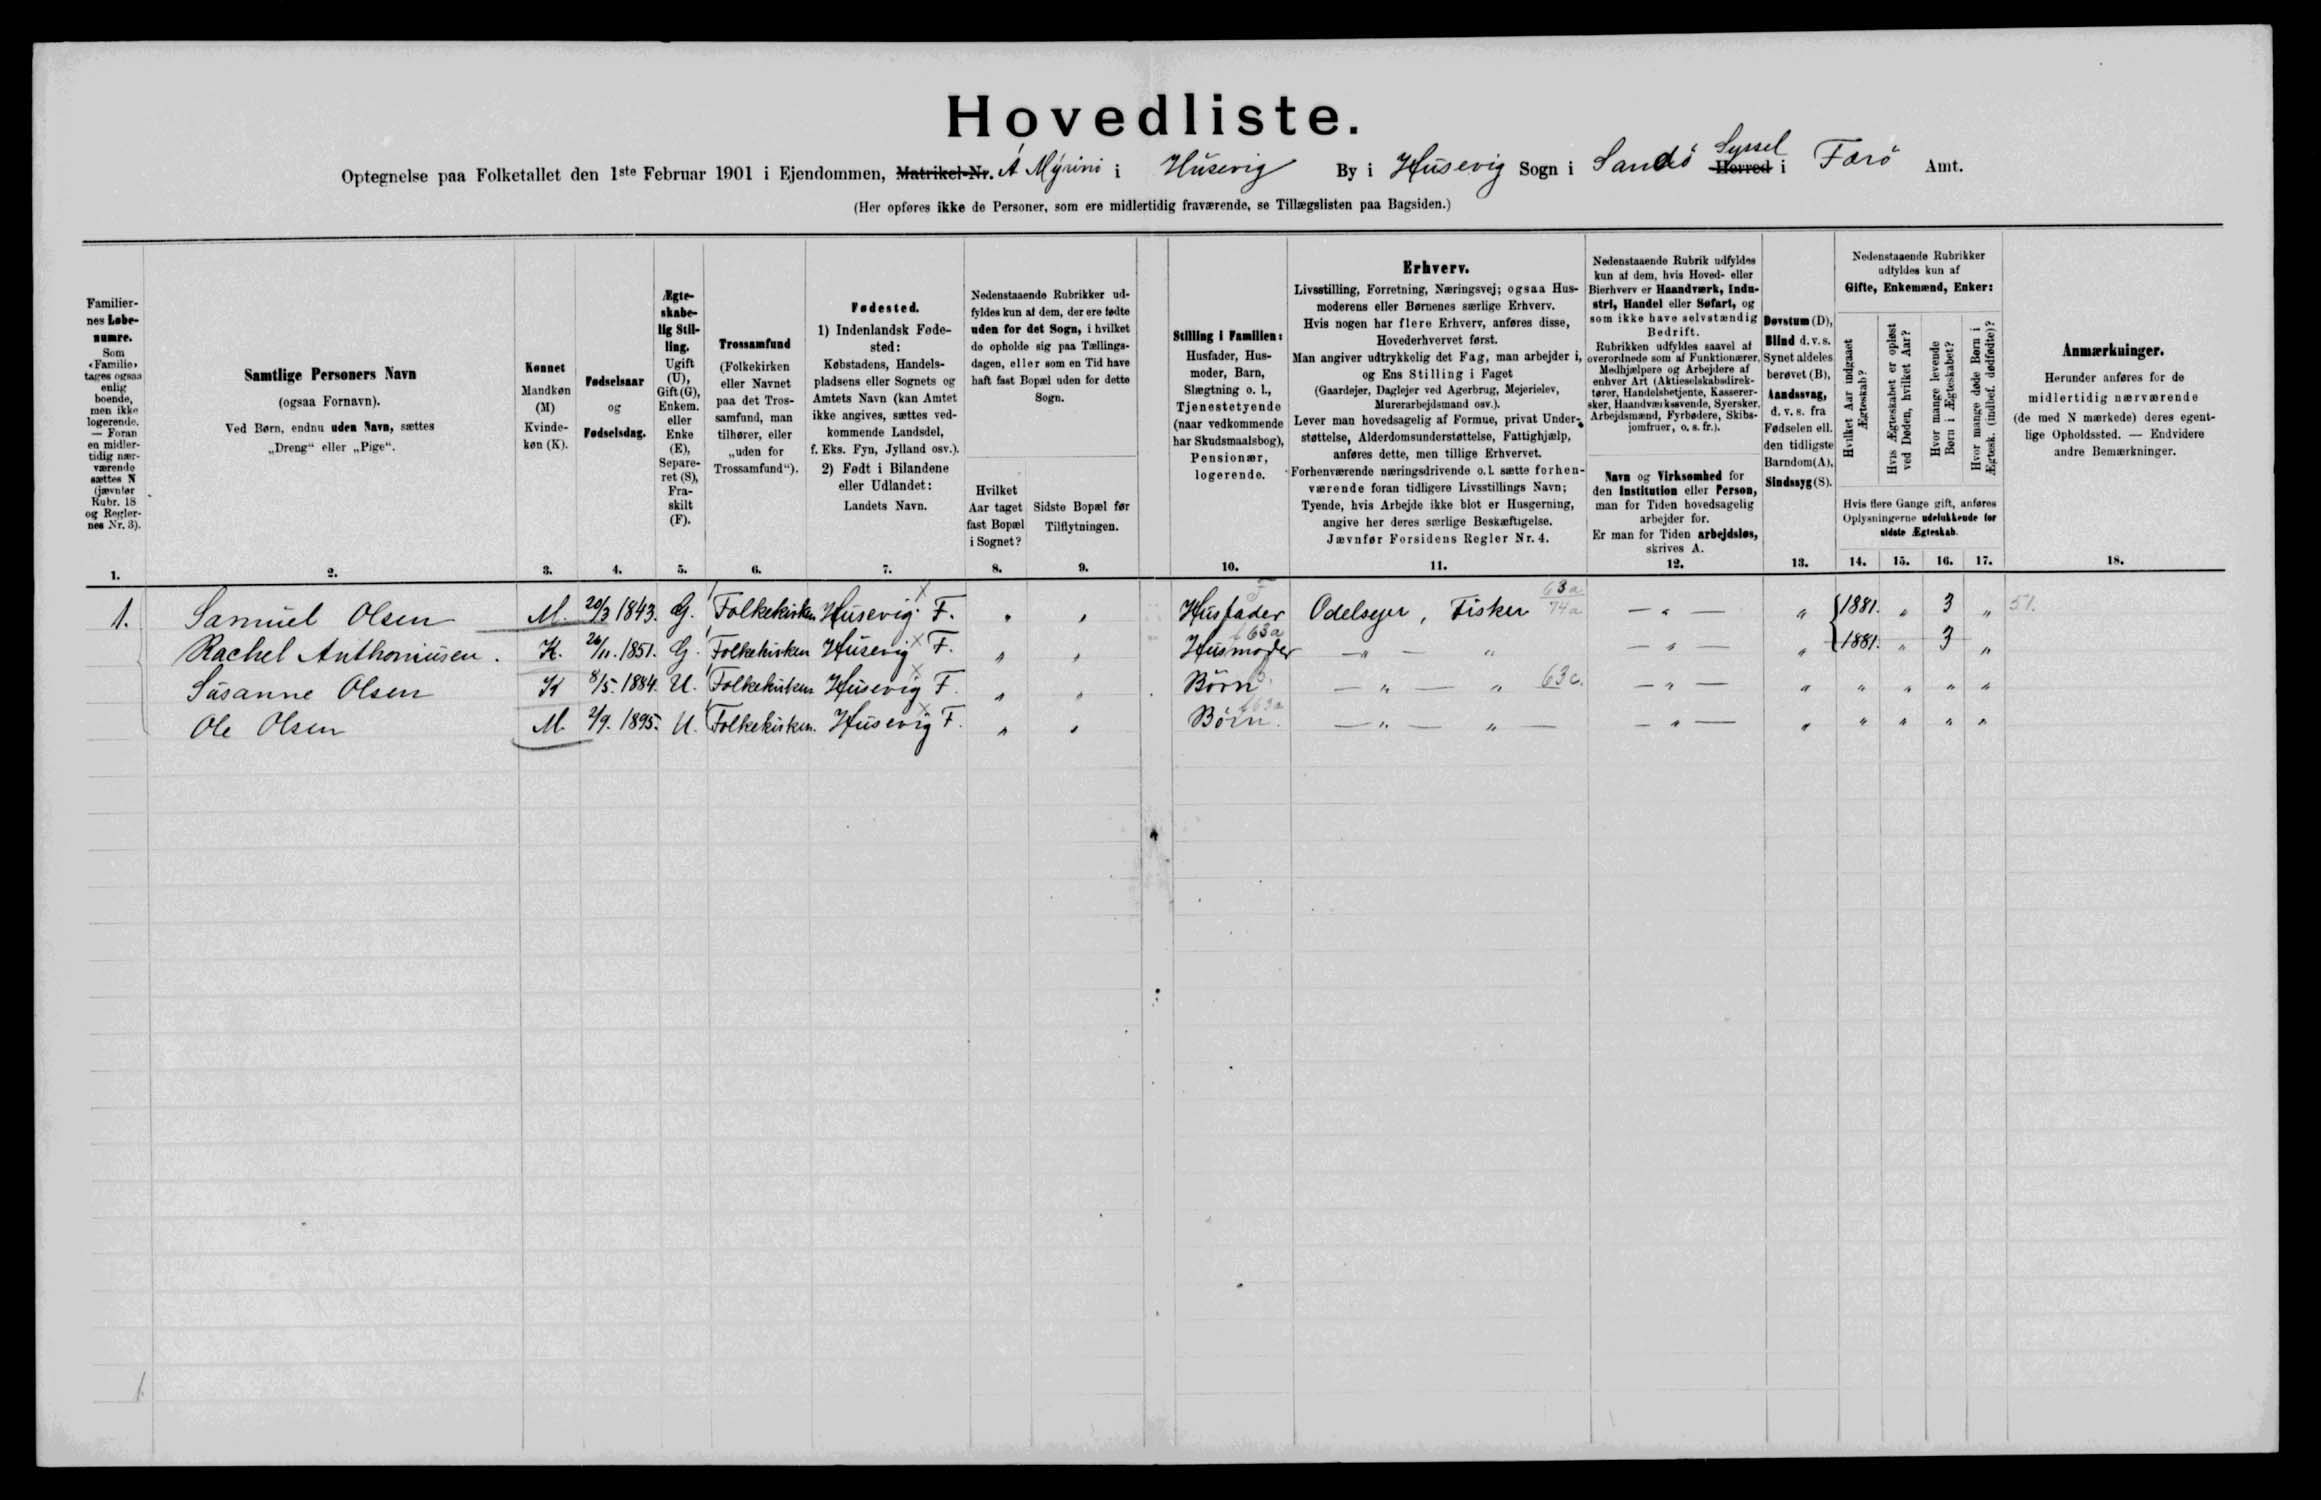 Hovedliste.
Optegnelse paa Folketallet den 1ste Februar 1901 i Ejendommen, Matrikel-Nr. Á Mýrini i Húsevig By i Húsevig Sogn i Sandö Herred Syssel i Færö Amt.
(Her opføres ikke de Personer, som ere midlertidig fraværende, se Tillægslisten paa Bagsiden.)
Familier-
nes Løbe-
numre.
Som
«Familie»
tages ogsaa
enlig
boende,
men ikke
logerende.
— Foran
en midler-
tidig nær-
værende
sættes N
(jævnfør
Rubr. 18
og Regler-
nes Nr. 3).
1.
Samtlige Personers Navn
(ogsaa Fornavn).
Ved Børn, endnu uden Navn, sættes
„Dreng“ eller „Pige“.
2.
Kønnet
Mandkøn
(M)
Kvinde-
køn (K).
3.
Fødselsaar
og
Fødselsdag.
4.
Ægte-
skabe-
lig Stil-
ling.
Ugift
(U),
Gift (G),
Enkem.
eller
Enke
(E),
Separe-
ret (S),
Fra-
skilt
(F).
5.
Trossamfund
(Folkekirken
eller Navnet
paa det Tros-
samfund, man
tilhører, eller
„uden for
Trossamfund“).
6.
Fødested.
1) Indenlandsk Føde-
sted:
Købstadens, Handels-
pladsens eller Sognets og
Amtets Navn (kan Amtet
ikke angives, sættes ved-
kommende Landsdel,
f. Eks. Fyn, Jylland osv.).
2) Født i Bilandene
eller Udlandet:
Landets Navn.
7.
Nedenstaaende Rubrikker ud-
fyldes kun af dem, der ere fødte
uden for det Sogn, i hvilket
de opholde sig paa Tællings-
dagen, eller som en Tid have
haft fast Bopæl uden for dette
Sogn.
Hvilket
Aar taget
fast Bopæl
i Sognet?
8.
Sidste Bopæl før
Tilflytningen.
9.
Stilling i Familien:
Husfader, Hus-
moder, Barn,
Slægtning o. l.,
Tjenestetyende
(naar vedkommende
har Skudsmaalsbog),
Pensionær,
logerende.
10.
Erhverv.
Livsstilling, Forretning, Næringsvej; ogsaa Hus-
moderens eller Børnenes særlige Erhverv.
Hvis nogen har flere Erhverv, anføres disse,
Hovederhvervet først.
Man angiver udtrykkelig det Fag, man arbejder i,
og Ens Stilling i Faget
(Gaardejer, Daglejer ved Agerbrug, Mejerielev,
Murerarbejdsmand osv.).
Lever man hovedsagelig af Formue, privat Under-
støttelse, Alderdomsunderstøttelse, Fattighjælp,
anføres dette, men tillige Erhvervet.
Forhenværende næringsdrivende o. l. sætte forhen-
værende foran tidligere Livsstillings Navn;
Tyende, hvis Arbejde ikke blot er Husgerning,
angive her deres særlige Beskæftigelse.
Jævnfør Forsidens Regler Nr. 4.
11.
Nedenstaaende Rubrik udfyldes
kun af dem, hvis Hoved- eller
Bierhverv er Haandværk, Indu-
stri, Handel eller Søfart, og
som ikke have selvstændig
Bedrift.
Rubrikken udfyldes saavel af
overordnede som af Funktionærer,
Medhjælpere og Arbejdere af
enhver Art (Aktieselskabsdirek-
tører, Handelsbetjente, Kasserer-
sker, Haandværkssvende, Syersker,
Arbejdsmænd, Fyrbødere, Skibs-
jomfruer, o. s. fr.).
Navn og Virksomhed for
den Institution eller Person,
man for Tiden hovedsagelig
arbejder for.
Er man for Tiden arbejdsløs,
skrives A.
12.
Døvstum (D),
Blind d. v. s.
Synet aldeles
berøvet (B),
Aandssvag,
d. v. s. fra
Fødselen ell.
den tidligste
Barndom (A),
Sindssyg (S).
13.
Nedenstaaende Rubrikker
udfyldes kun af
Gifte, Enkemænd, Enker:
Hvilket Aar indgaaet
Ægteskab?
Hvis Ægteskabet er opløst
ved Døden, hvilket Aar?
Hvor mange levende
Børn i Ægteskabet?
Hvor mange døde Børn i
Ægtesk. (indbef. dødfødte)?
Hvis flere Gange gift, anføres
Oplysningerne udelukkende for
sidste Ægteskab.
14. 15. 16. 17.
Anmærkninger.
Herunder anføres for de
midlertidig nærværende
(de med N mærkede) deres egent-
lige Opholdssted. — Endvidere
andre Bemærkninger.
18.
1. Samúel Olsen M. 20/3 1843. G. Folkekirken Húsevig. F. " " Húsfader Odelsejer, Fisker 63a 74a — " — " 1881. " 3 " 51.
Rachel Anthoniúsen. K. 26/11. 1851. G. Folkekirken Húsevig F. " " Húsmoder 63a — " — " — " — " 1881. " 3 "
Súsanne Olsen K 8/5. 1884. U. Folkekirken Húsevig F. " " Börn — " — " 63c. — " — " " " " "
Ole Olsen M. 2/9. 1895. U. Folkekirken. Húsevig F. " " Börn. 63a — " — " — — " — " " " " "
1.